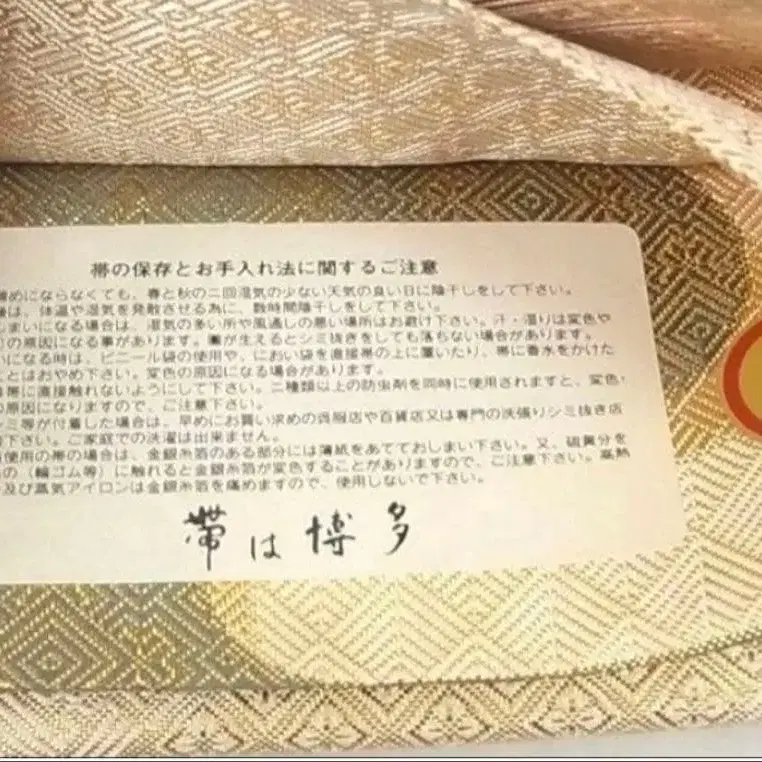 帯の保存とお手入れ法に関するご注意
締めにならなくても、春と秋の二回湿気の少ない天気の良い日に陰干しをして下さい。
は、体温や湿気を発散させる為に、数時間陰干しをして下さい。
しまいになる場合は、湿気の多い所や風通しの悪い場所はお避け下さい。汗・湿りは変色や
の原因になる事があります。黴が生えるとシミ抜きをしても落ちない場合があります。
いになる時は、ビニール袋の使用や、におい袋を直接帯の上に置いたり、帯に香水をかけた
ことはおやめ下さい。変色の原因になる場合があります。
帯に直接触れないようにして下さい。二種類以上の防虫剤を同時に使用されますと、変色・
の原因になりますので、ご注意下さい。
シミ等が付着した場合は、早めにお買い求めの呉服店や百貨店又は専門の洗張りシミ抜き店
下さい。ご家庭での洗濯は出来ません。
使用の帯の場合は、金銀糸箔のある部分には薄紙をあてておしまい下さい。又、硫黄分を
の（輪ゴム等）に触れると金銀糸箔が変色することがありますので、ご注意下さい。高熱
及び蒸気アイロンは金銀糸箔を痛めますので、使用しないで下さい。
帯は博多